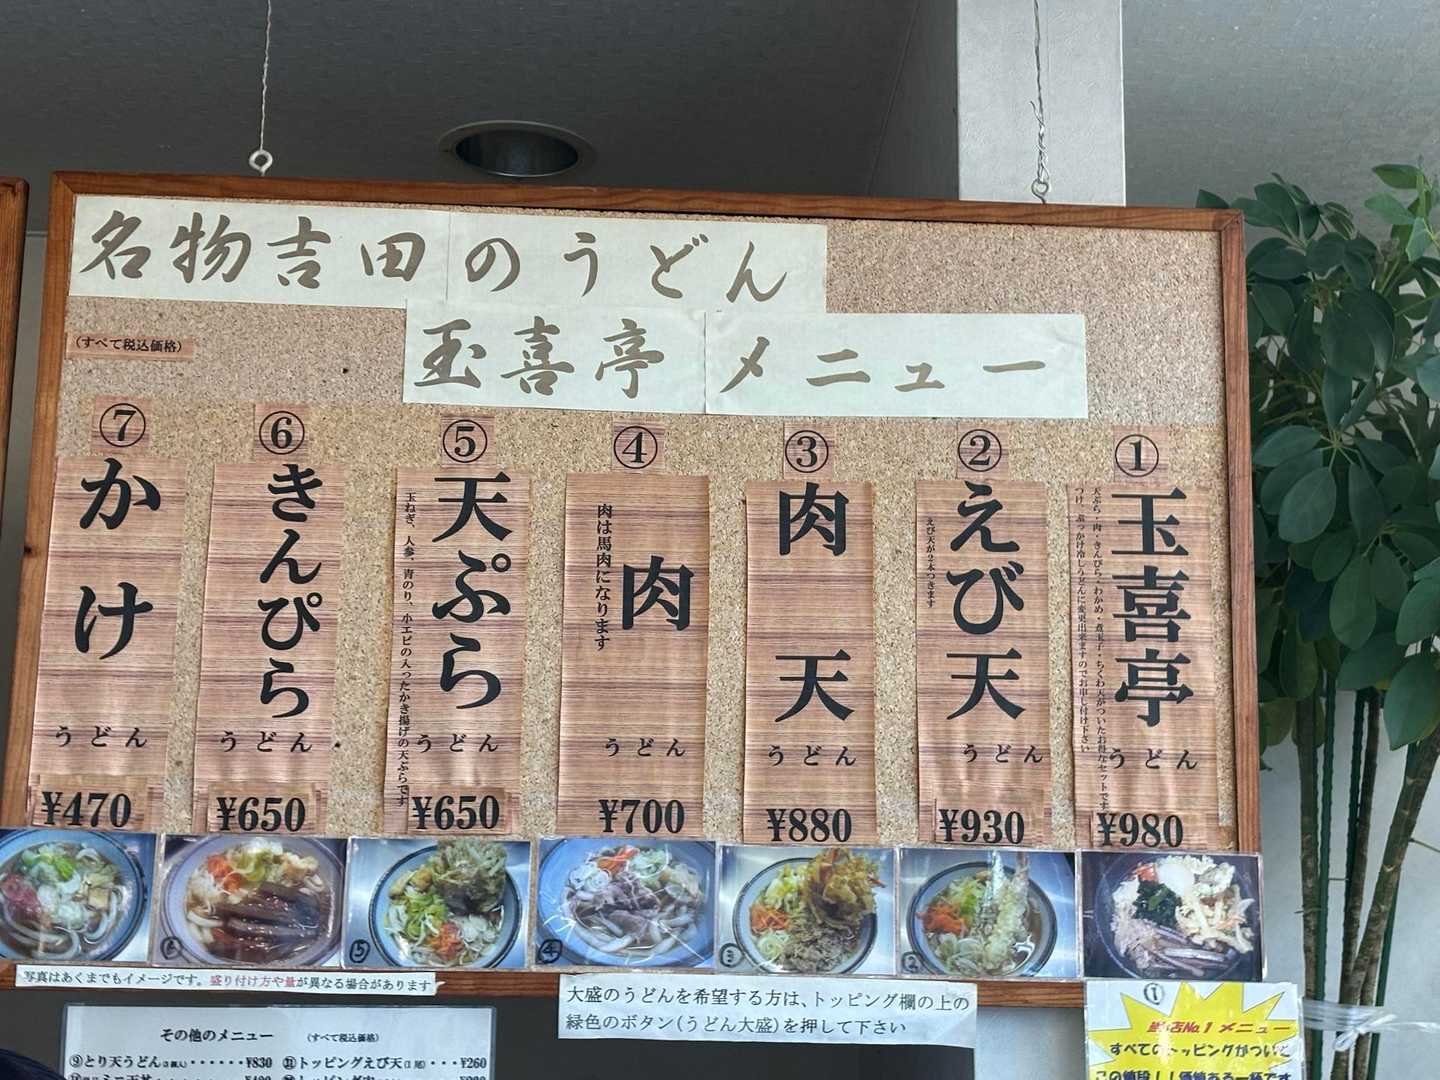 名物吉田のうどん
玉喜亭 メニュー
(すべて税込価格)
①
玉喜亭
うどん
天ぷら・肉・きんぴら・わかめ・煮玉子・ちくわ天がついたお得なセットです
つけ、ぶっかけ冷しうどんに変更出来ますのでお申し付け下さい
¥980
②
えび天
うどん
えび天が2本つきます
¥930
③
肉天
うどん
¥880
④
肉
うどん
肉は馬肉になります
¥700
⑤
天ぷら
うどん
玉ねぎ、人参、青のり、小エビの入ったかき揚げの天ぷらです
¥650
⑥
きんぴら
うどん
¥650
⑦
かけ
うどん
¥470
⑥
⑤
④
③
②
①
写真はあくまでもイメージです。盛り付け方や量が異なる場合があります
大盛のうどんを希望する方は、トッピング欄の上の
緑色のボタン(うどん大盛)を押して下さい
その他のメニュー (すべて税込価格)
⑨とり天うどん(3個入)・・・・・・¥830
⑪トッピングえび天(1尾)・・・¥260
当店No.1 メニュー
すべてのトッピングがついて
この値段！！価値ある一杯です